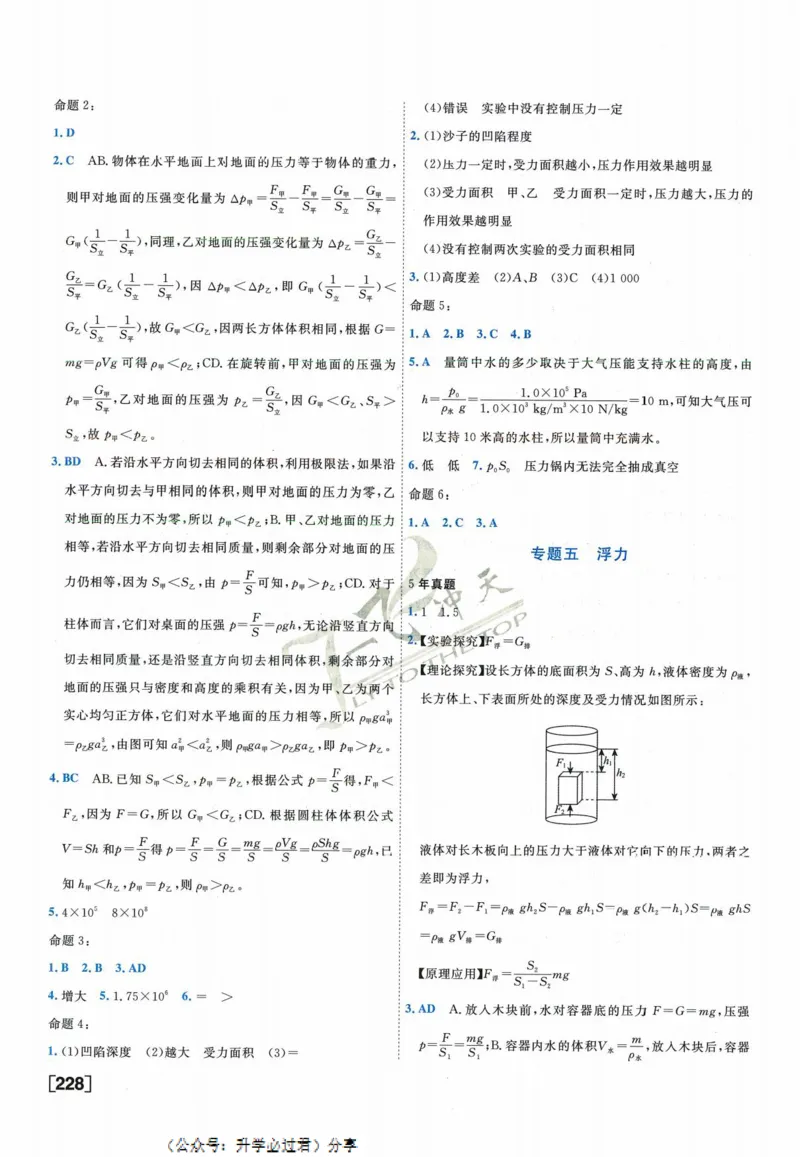 命题2：
1.D
2.C AB.物体在水平地面上对地面的压力等于物体的重力，
则甲对地面的压强变化量为 Δp甲=F甲/S立-F甲/S平=G甲/S立-G甲/S平=
G甲(1/S立-1/S平),同理,乙对地面的压强变化量为 Δp乙=G乙/S立-
G乙/S平=G乙(1/S立-1/S平),因 Δp甲<Δp乙,即 G甲(1/S立-1/S平)<
G乙(1/S立-1/S平),故 G甲<G乙,因两长方体体积相同,根据 G=
mg=ρVg 可得 ρ甲<ρ乙;CD.在旋转前,甲对地面的压强为
p甲=G甲/S平,乙对地面的压强为 p乙=G乙/S立,因 G甲<G乙、S平>
S立,故 p甲<p乙。
3.BD A.若沿水平方向切去相同的体积,利用极限法,如果沿
水平方向切去与甲相同的体积,则甲对地面的压力为零,乙
对地面的压力不为零,所以 p甲<p乙;B.甲、乙对地面的压力
相等,若沿水平方向切去相同质量,则剩余部分对地面的压
力仍相等,因为 S甲<S乙,由 p=F/S可知,p甲>p乙;CD.对于
柱体而言,它们对桌面的压强 p=F/S=ρgh,无论沿竖直方向
切去相同质量,还是沿竖直方向切去相同体积,剩余部分对
地面的压强只与密度和高度的乘积有关,因为甲、乙为两个
实心均匀正方体,它们对水平地面的压力相等,所以 ρ甲ga³甲
=ρ乙ga³乙,由图可知 a²甲<a²乙,则 ρ甲ga甲>ρ乙ga乙,即 p甲>p乙。
4.BC AB.已知 S甲<S乙,p甲=p乙,根据公式 p=F/S得,F甲<
F乙,因为 F=G,所以 G甲<G乙;CD.根据圆柱体体积公式
V=Sh 和p=F/S得 p=F/S=G/S=mg/S=ρVg/S=ρShg/S=ρgh,已
知 h甲<h乙,p甲=p乙,则 ρ甲>ρ乙。
5.4×10⁵ 8×10⁸
命题3：
1.B 2.B 3.AD
4.增大 5.1.75×10⁶ 6.= >
命题4：
1.(1)凹陷深度 (2)越大 受力面积 (3)=
[228]
(4)错误 实验中没有控制压力一定
2.(1)沙子的凹陷程度
(2)压力一定时,受力面积越小,压力作用效果越明显
(3)受力面积 甲、乙 受力面积一定时,压力越大,压力的
作用效果越明显
(4)没有控制两次实验的受力面积相同
3.(1)高度差 (2)A、B (3)C (4)1 000
命题5：
1.A 2.B 3.C 4.B
5.A 量筒中水的多少取决于大气压能支持水柱的高度,由
h=p₀/ρ水g=1.0×10⁵ Pa/1.0×10³ kg/m³×10 N/kg=10 m,可知大气压可
以支持10米高的水柱,所以量筒中充满水。
6.低 低 7.p₀S₀ 压力锅内无法完全抽成真空
命题6：
1.A 2.C 3.A
专题五 浮力
5年真题
1.1 1.5
2.【实验探究】F浮=G排
【理论探究】设长方体的底面积为 S、高为 h,液体密度为 ρ液,
长方体上、下表面所处的深度及受力情况如图所示：
F₁
h₁
h₂
F₂
液体对长木板向上的压力大于液体对它向下的压力,两者之
差即为浮力,
F浮=F₂-F₁=ρ液 gh₂S-ρ液 gh₁S=ρ液 g(h₂-h₁)S=ρ液 ghS
=ρ液 gV排=G排
【原理应用】F浮=S₂/(S₁-S₂)mg
3.AD A.放入木块前,水对容器底的压力 F=G=mg,压强
p=F/S₁=mg/S₁;B.容器内水的体积V水=m/ρ水,放入木块后,容器
(公众号：升学必过君)分享